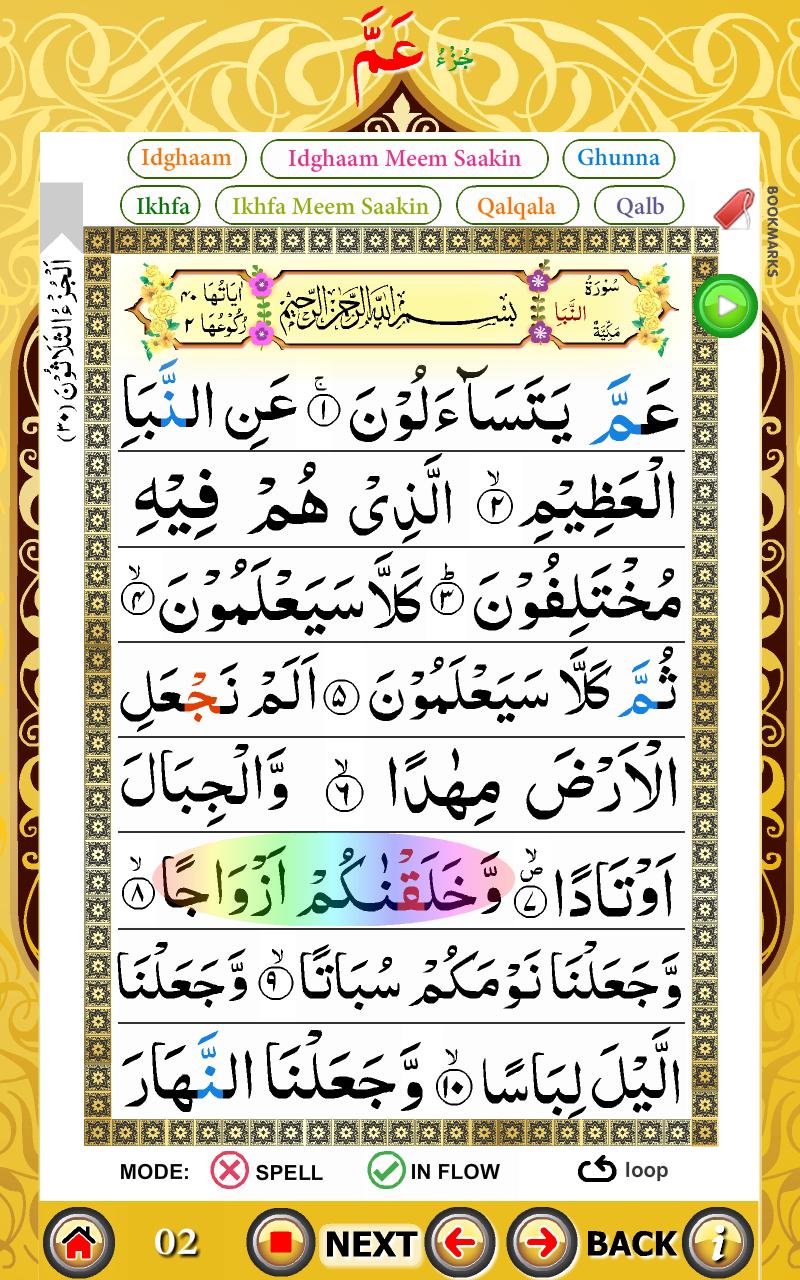 جُزْءُ عَمَّ
Idghaam Idghaam Meem Saakin Ghunna
Ikhfa Ikhfa Meem Saakin Qalqala Qalb
BOOKMARKS
اَلْجُزْءُ الثَّلَاثُوْنَ (٣٠)
سُوْرَةُ النَّبَا مَكِّيَّةٌ
بِسْمِ اللهِ الرَّحْمٰنِ الرَّحِيْمِ
اٰيَاتُهَا ٤٠ رُكُوْعُهَا ٢
عَمَّ يَتَسَآءَلُوْنَ ۚ ١ عَنِ النَّبَاِ
الْعَظِيْمِ ۙ ٢ الَّذِىْ هُمْ فِيْهِ
مُخْتَلِفُوْنَ ؕ ٣ كَلَّا سَيَعْلَمُوْنَ ۙ ٤
ثُمَّ كَلَّا سَيَعْلَمُوْنَ ٥ اَلَمْ نَجْعَلِ
الْاَرْضَ مِهٰدًا ۙ ٦ وَّالْجِبَالَ
اَوْتَادًا ۙ ٧ وَّخَلَقْنٰكُمْ اَزْوَاجًا ۙ ٨
وَّجَعَلْنَا نَوْمَكُمْ سُبَاتًا ۙ ٩ وَّجَعَلْنَا
الَّيْلَ لِبَاسًا ۙ ١٠ وَّجَعَلْنَا النَّهَارَ
MODE: SPELL IN FLOW loop
02 NEXT BACK i